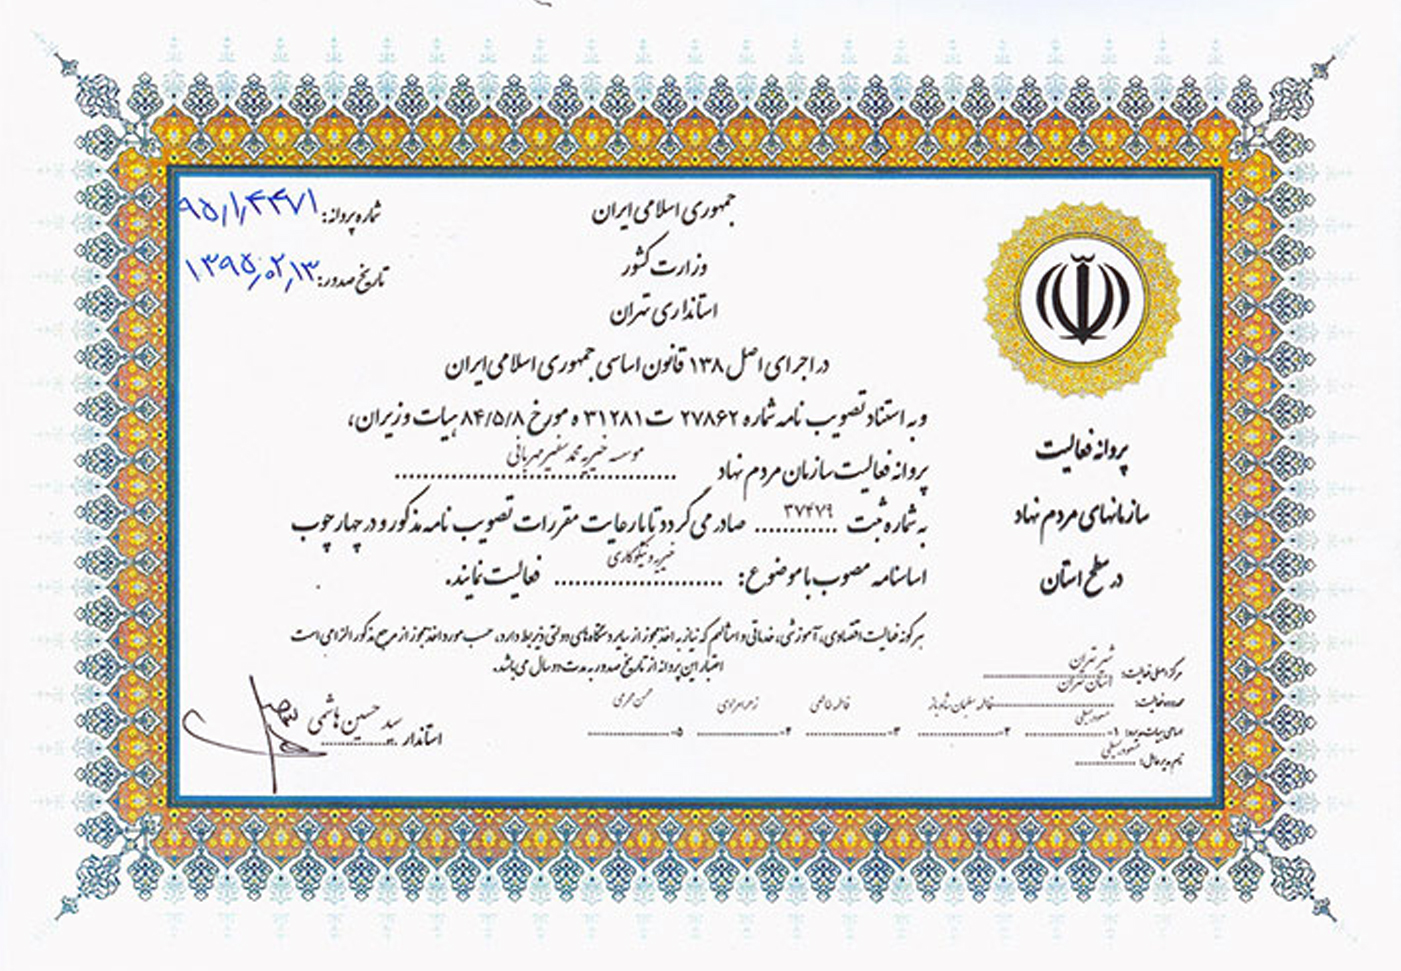 جمهوری اسلامی ایران
وزارت کشور
استانداری تهران
شماره پروانه: ۹۵/۱/۴۴۷۱
تاریخ صدور: ۱۳۹۵/۰۲/۱۳
در اجرای اصل ۱۳۸ قانون اساسی جمهوری اسلامی ایران
و به استناد تصویب نامه شماره ۲۷۸۶۲ ت ۳۱۲۸۱ ه مورخ ۸۴/۵/۸ هیات وزیران،
پروانه فعالیت سازمان مردم نهاد موسسه خیریه محمد سفیر مهربانی
به شماره ثبت ۳۷۴۷۹ صادر می گردد تا با رعایت مقررات تصویب نامه مذکور و در چهار چوب
اساسنامه مصوب با موضوع: خیریه و نیکوکاری فعالیت نمایند.
هرگونه فعالیت اقتصادی، آموزشی، خدماتی و امثالهم که نیاز به اخذ مجوز از سایر دستگاه های دولتی ذیربط دارد، حسب مورد اخذ مجوز از مرجع مذکور الزامی است
اعتبار این پروانه از تاریخ صدور به مدت دو سال می باشد.
پروانه فعالیت
سازمانهای مردم نهاد
در سطح استان
مرکز اصلی فعالیت: شهر تهران
محدوده فعالیت: استان تهران
اسامی هیات مدیره: ۱- مسعود ۲- فاطمه سلیمان ۳- فاطمه ۴- زهرا ۵- محسن
نام مدیر عامل: مسعود
استاندار سید حسین هاشمی